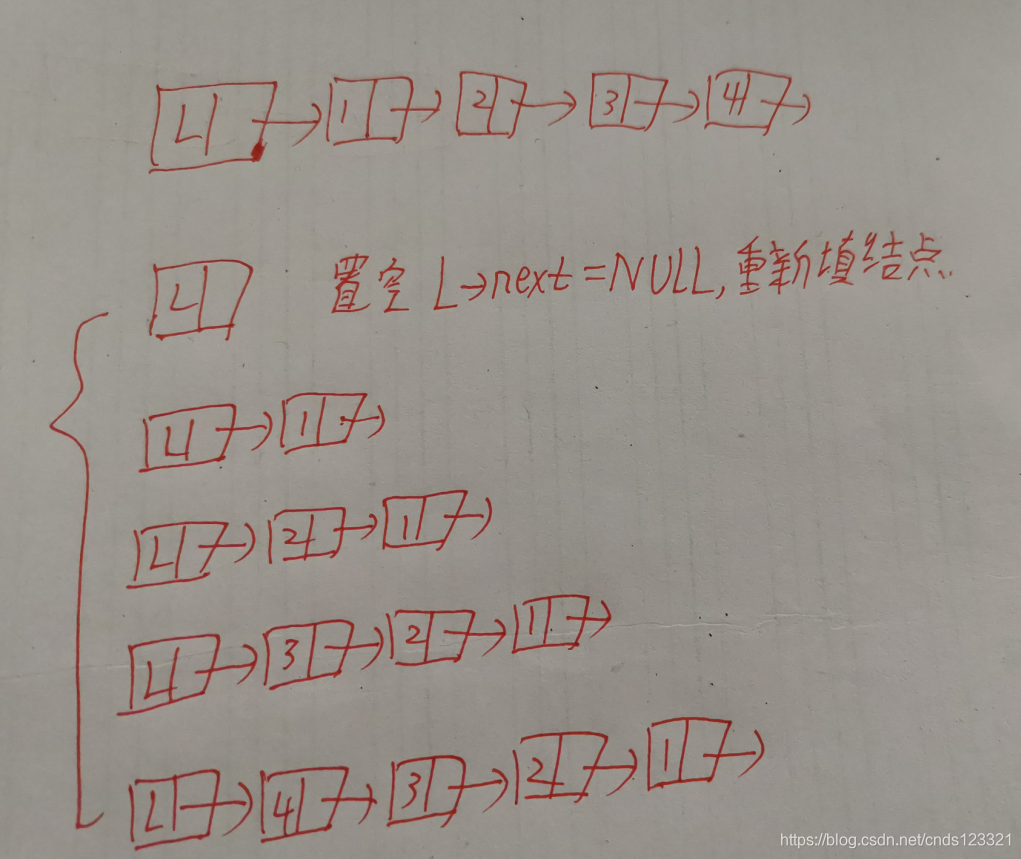 L 1 2 3 4
L 置空 L→next=NULL,重新填结点.
L 1
L 2 1
L 3 2 1
L 4 3 2 1
https://blog.csdn.net/cnds123321